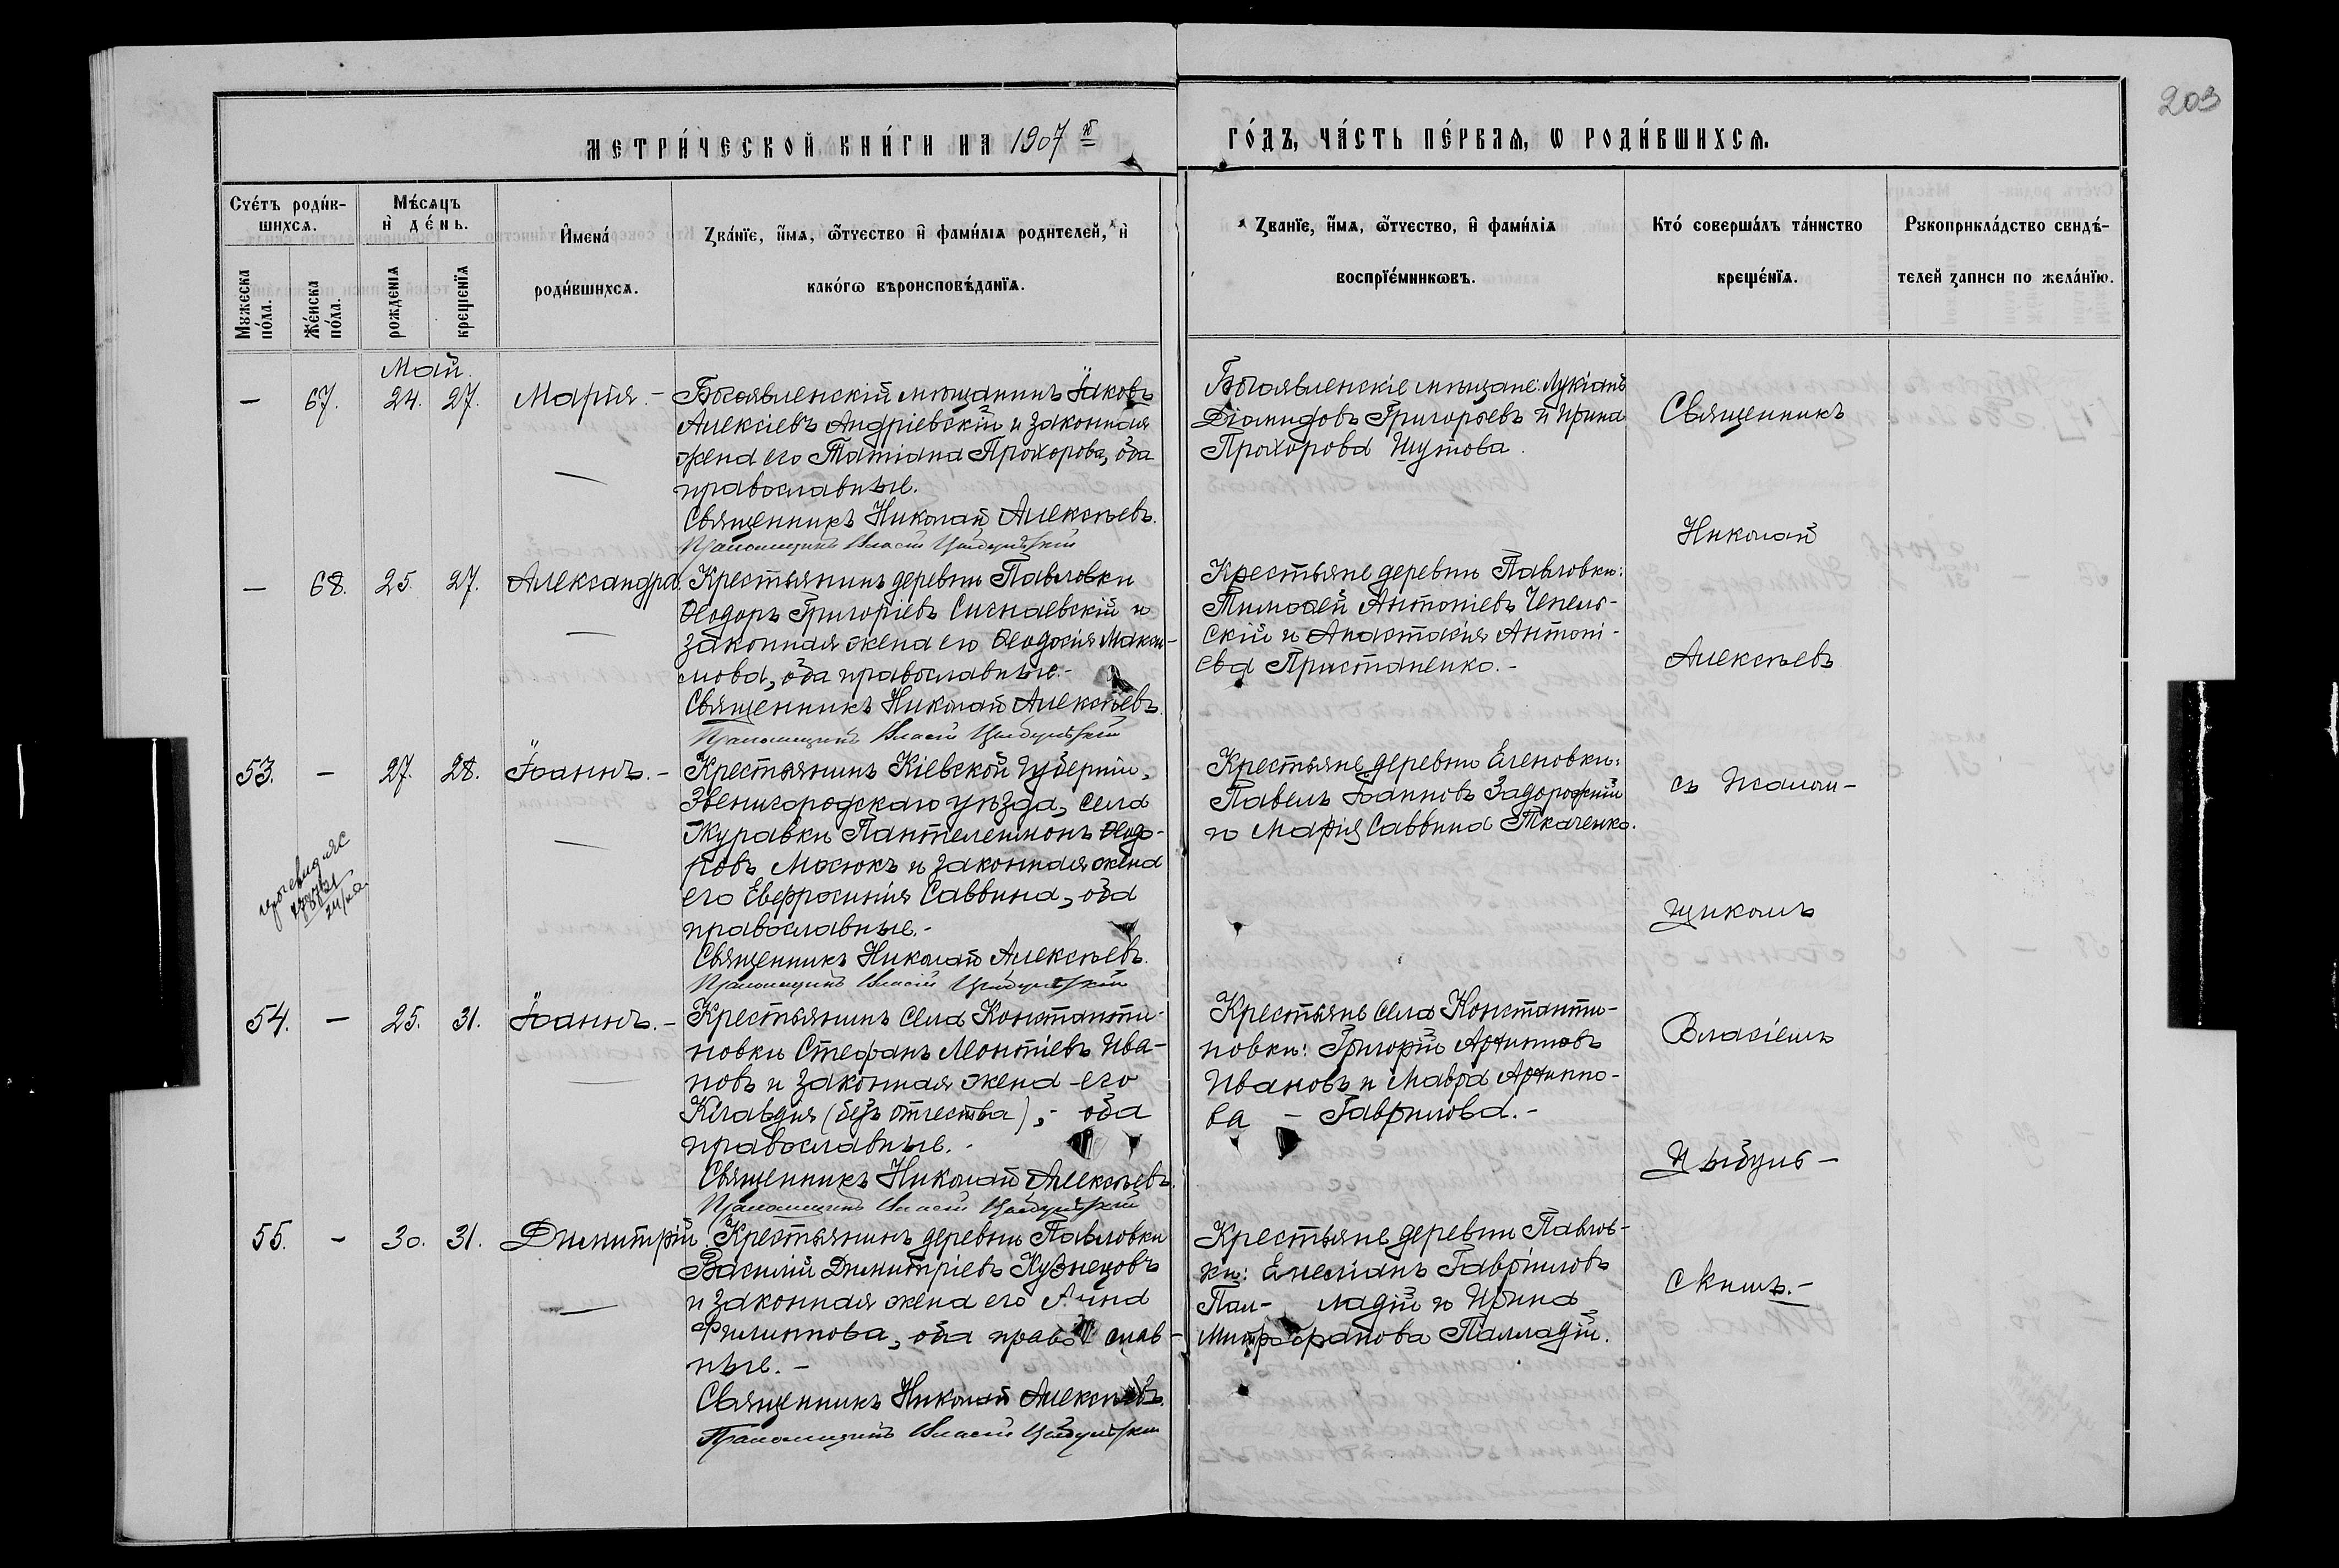 203
МЕТРИ́ЧЕСКОЙ КНИ́ГИ НА 1907 й
ГО́ДЪ, ЧА́СТЬ ПЕ́РВАѦ, Ѡ РОДИ́ВШИХСѦ.
Сче́тъ роди́в-
шихсѧ.
Мꙋжеска
по́ла.
Же́нска
по́ла.
Мѣ́сѧцъ
и҆ де́нь.
рожденїѧ
крещенїѧ
И҆мена́
роди́вшихсѧ.
Зва́нїе, и҆́мѧ, ѻ҆́тчество и҆ фами́лїѧ родителей, и҆
како́гѡ вѣроисповѣ́данїѧ.
Званїе, и҆́мѧ, ѻ҆́тчество, и҆ фами́лїѧ
воспрїе́мникѡвъ.
Кто́ соверша́лъ та́инство
креще́нїѧ.
Рꙋкоприкла́дство свидѣ́-
телей записи по жела́нїю.
Май.
— 67. 24. 27. Марія. —
Богоявленскій мѣщанинъ Іаковъ
Алексіевъ Андріевскій и законная
жена его Татіана Прохорова, оба
православные.
Священникъ Николай Алексѣевъ.
Псаломщикъ Власій Цыбульскій
Богоявленскіе мѣщане: Лукіанъ
Діомидовъ Григорьевъ и Ирина
Прохорова Шутова.
— 68. 25. 27. Александра.
Крестьянинъ деревни Павловки
Ѳеодоръ Григоріевъ Сигнаевскій и
законная жена его Ѳеодосія Макси-
мова, оба православные. -
Священникъ Николай Алексѣевъ.
Псаломщикъ Власій Цыбульскій
Крестьяне деревни Павловки:
Тимоѳей Антоніевъ Чепель-
скій и Анастасія Антоні-
ева Пристаненко. -
53. — 27. 28. Іоаннъ. —
Крестьянинъ Кіевской губерніи,
Звенигородскаго уѣзда, села
Журавки Пантелеимонъ Ѳеодо-
ровъ Мосюкъ и законная жена
его Евфросинія Саввина, оба
православные. -
Священникъ Николай Алексѣевъ.
Псаломщикъ Власій Цыбульскій
Крестьяне деревни Еленовки:
Павелъ Іоанновъ Задорожній
и Марія Саввина Ткаченко.
54. — 25. 31. Іоаннъ. —
Крестьянинъ села Константи-
новки Стефанъ Леонтіевъ Ива-
новъ и законная жена его
Клавдія (безъ отчества), - оба
православные. -
Священникъ Николай Алексѣевъ.
Псаломщикъ Власій Цыбульскій
Крестьяне села Константи-
новки: Григорій
Ивановъ и Мавра
ва — Гаврилова. -
55. — 30. 31. Димитрій.
Крестьянинъ деревни Павловки
Василій Димитріевъ Кузнецовъ
и законная жена его Анна
Филиппова, оба православ-
ные. -
Священникъ Николай Алексѣевъ.
Псаломщикъ Власій Цыбульскій
Крестьяне деревни Павлов-
ки: Емеліанъ Гавріиловъ
Пал- ладій и Ирина
Митрофанова Палладій.
Священникъ
Николай
Алексѣевъ
съ Псалом-
щикомъ
Власіемъ
Цыбуль-
скимъ. -